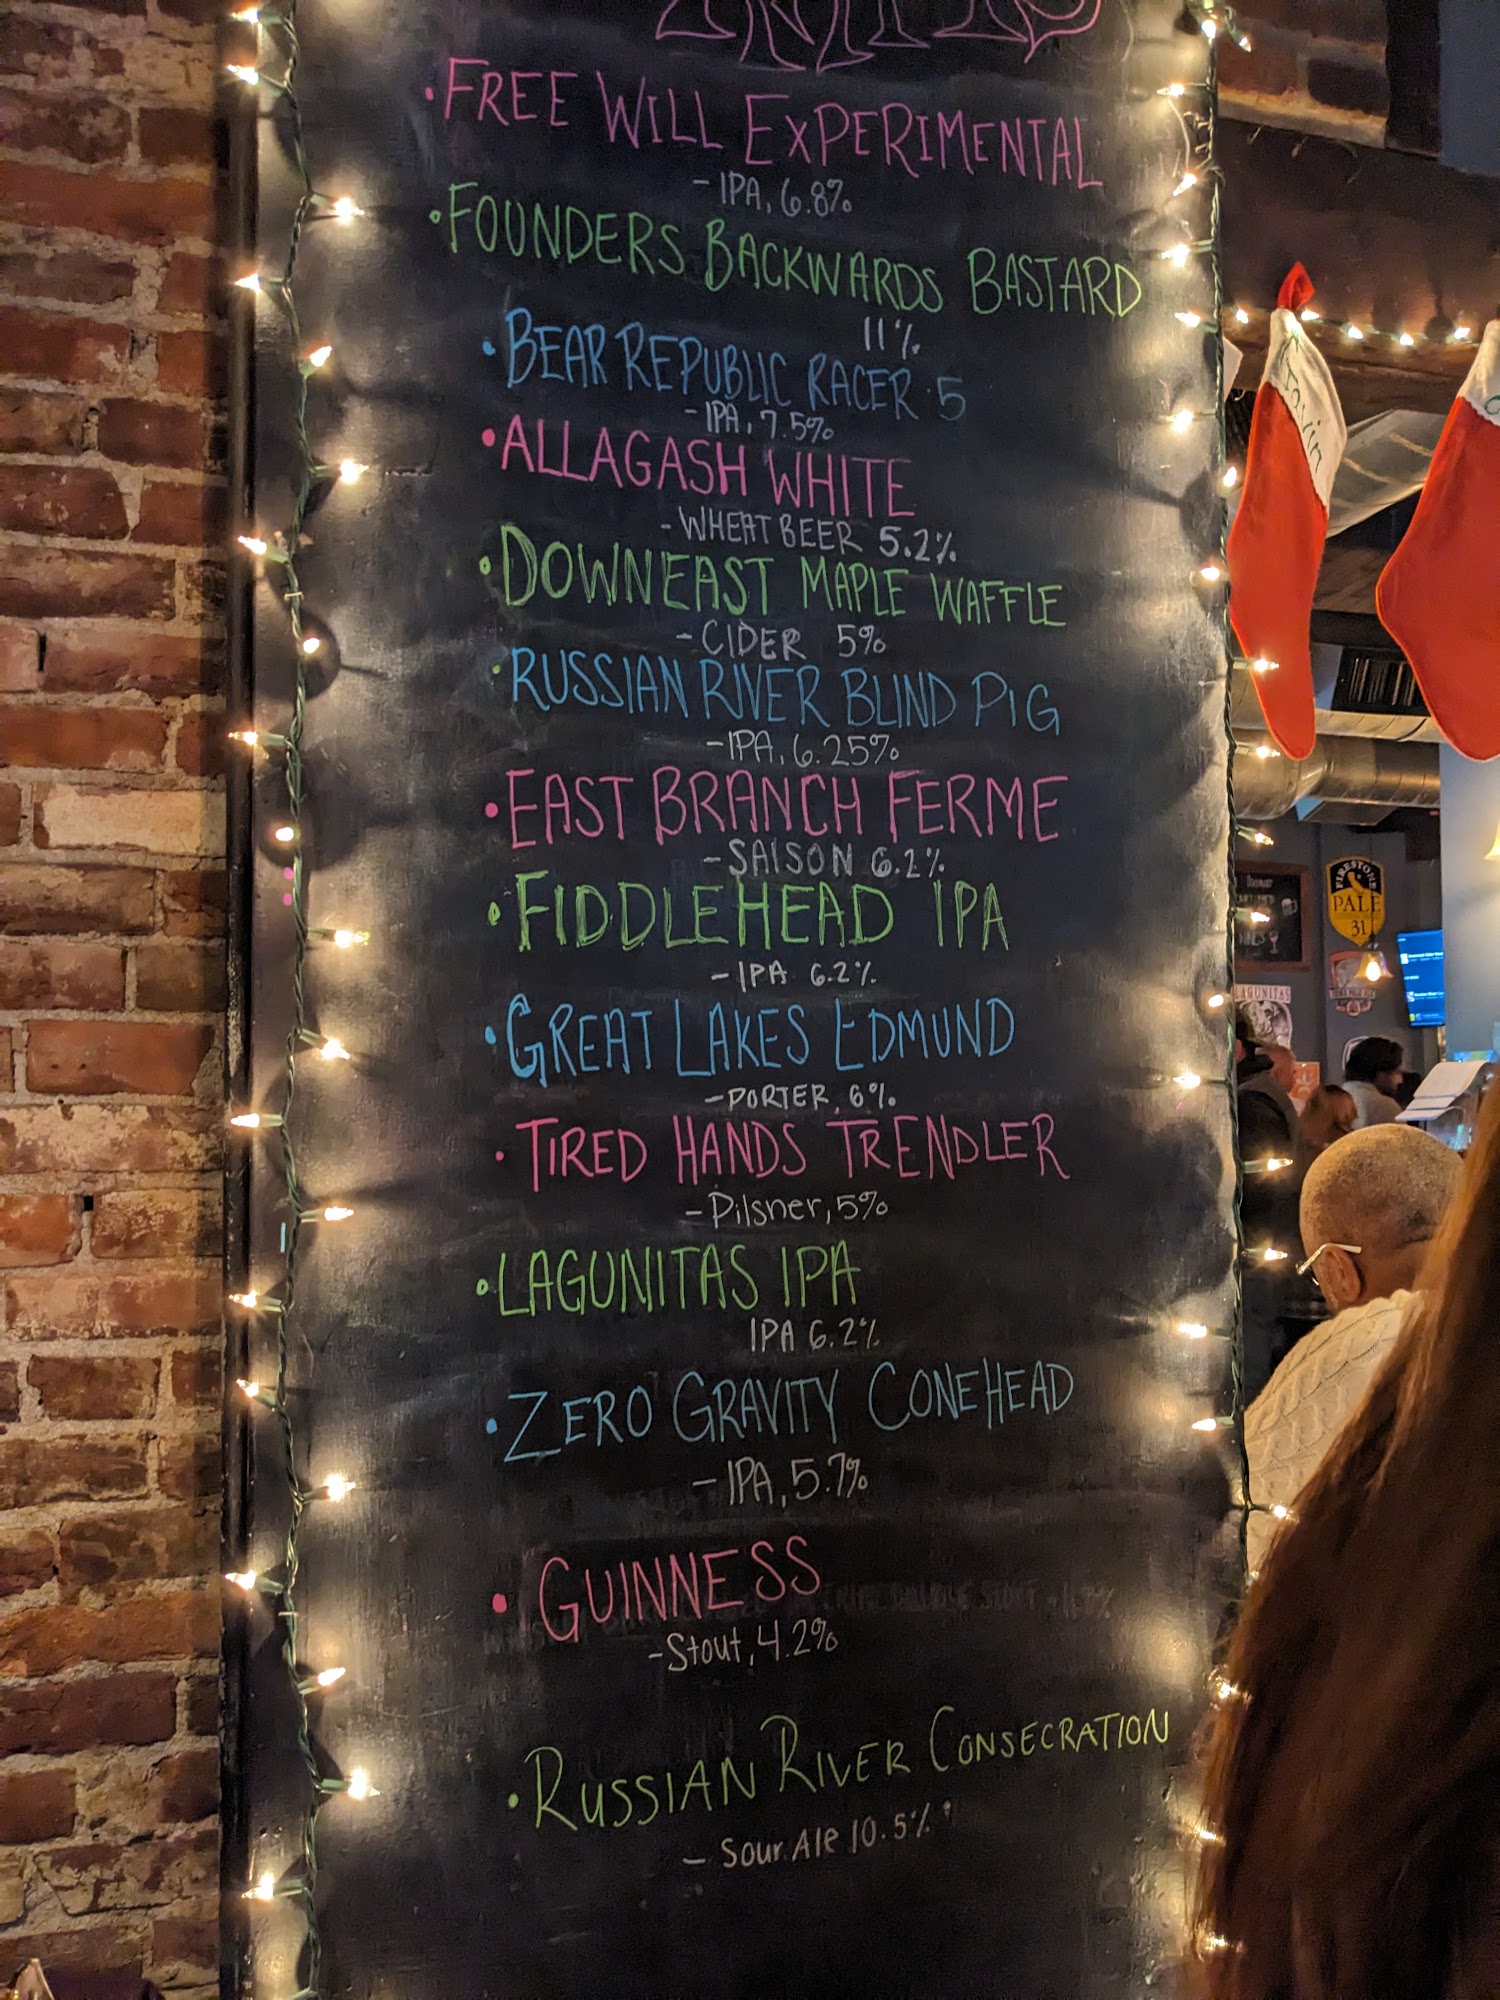 • FREE WILL EXPERIMENTAL
- IPA, 6.8%
• FOUNDERS BACKWARDS BASTARD
11%
• BEAR REPUBLIC RACER 5
- IPA, 7.5%
• ALLAGASH WHITE
- WHEAT BEER 5.2%
• DOWNEAST MAPLE WAFFLE
- CIDER 5%
• RUSSIAN RIVER BLIND PIG
- IPA, 6.25%
• EAST BRANCH FERME
- SAISON 6.2%
• FIDDLEHEAD IPA
- IPA 6.2%
• GREAT LAKES EDMUND
- PORTER, 6%
• TIRED HANDS TRENDLER
- Pilsner, 5%
• LAGUNITAS IPA
IPA 6.2%
• ZERO GRAVITY CONEHEAD
- IPA, 5.7%
• GUINNESS
- Stout, 4.2%
• RUSSIAN RIVER CONSECRATION
- Sour Ale 10.5%
FIRESTONE
PALE
31
LAGUNITAS